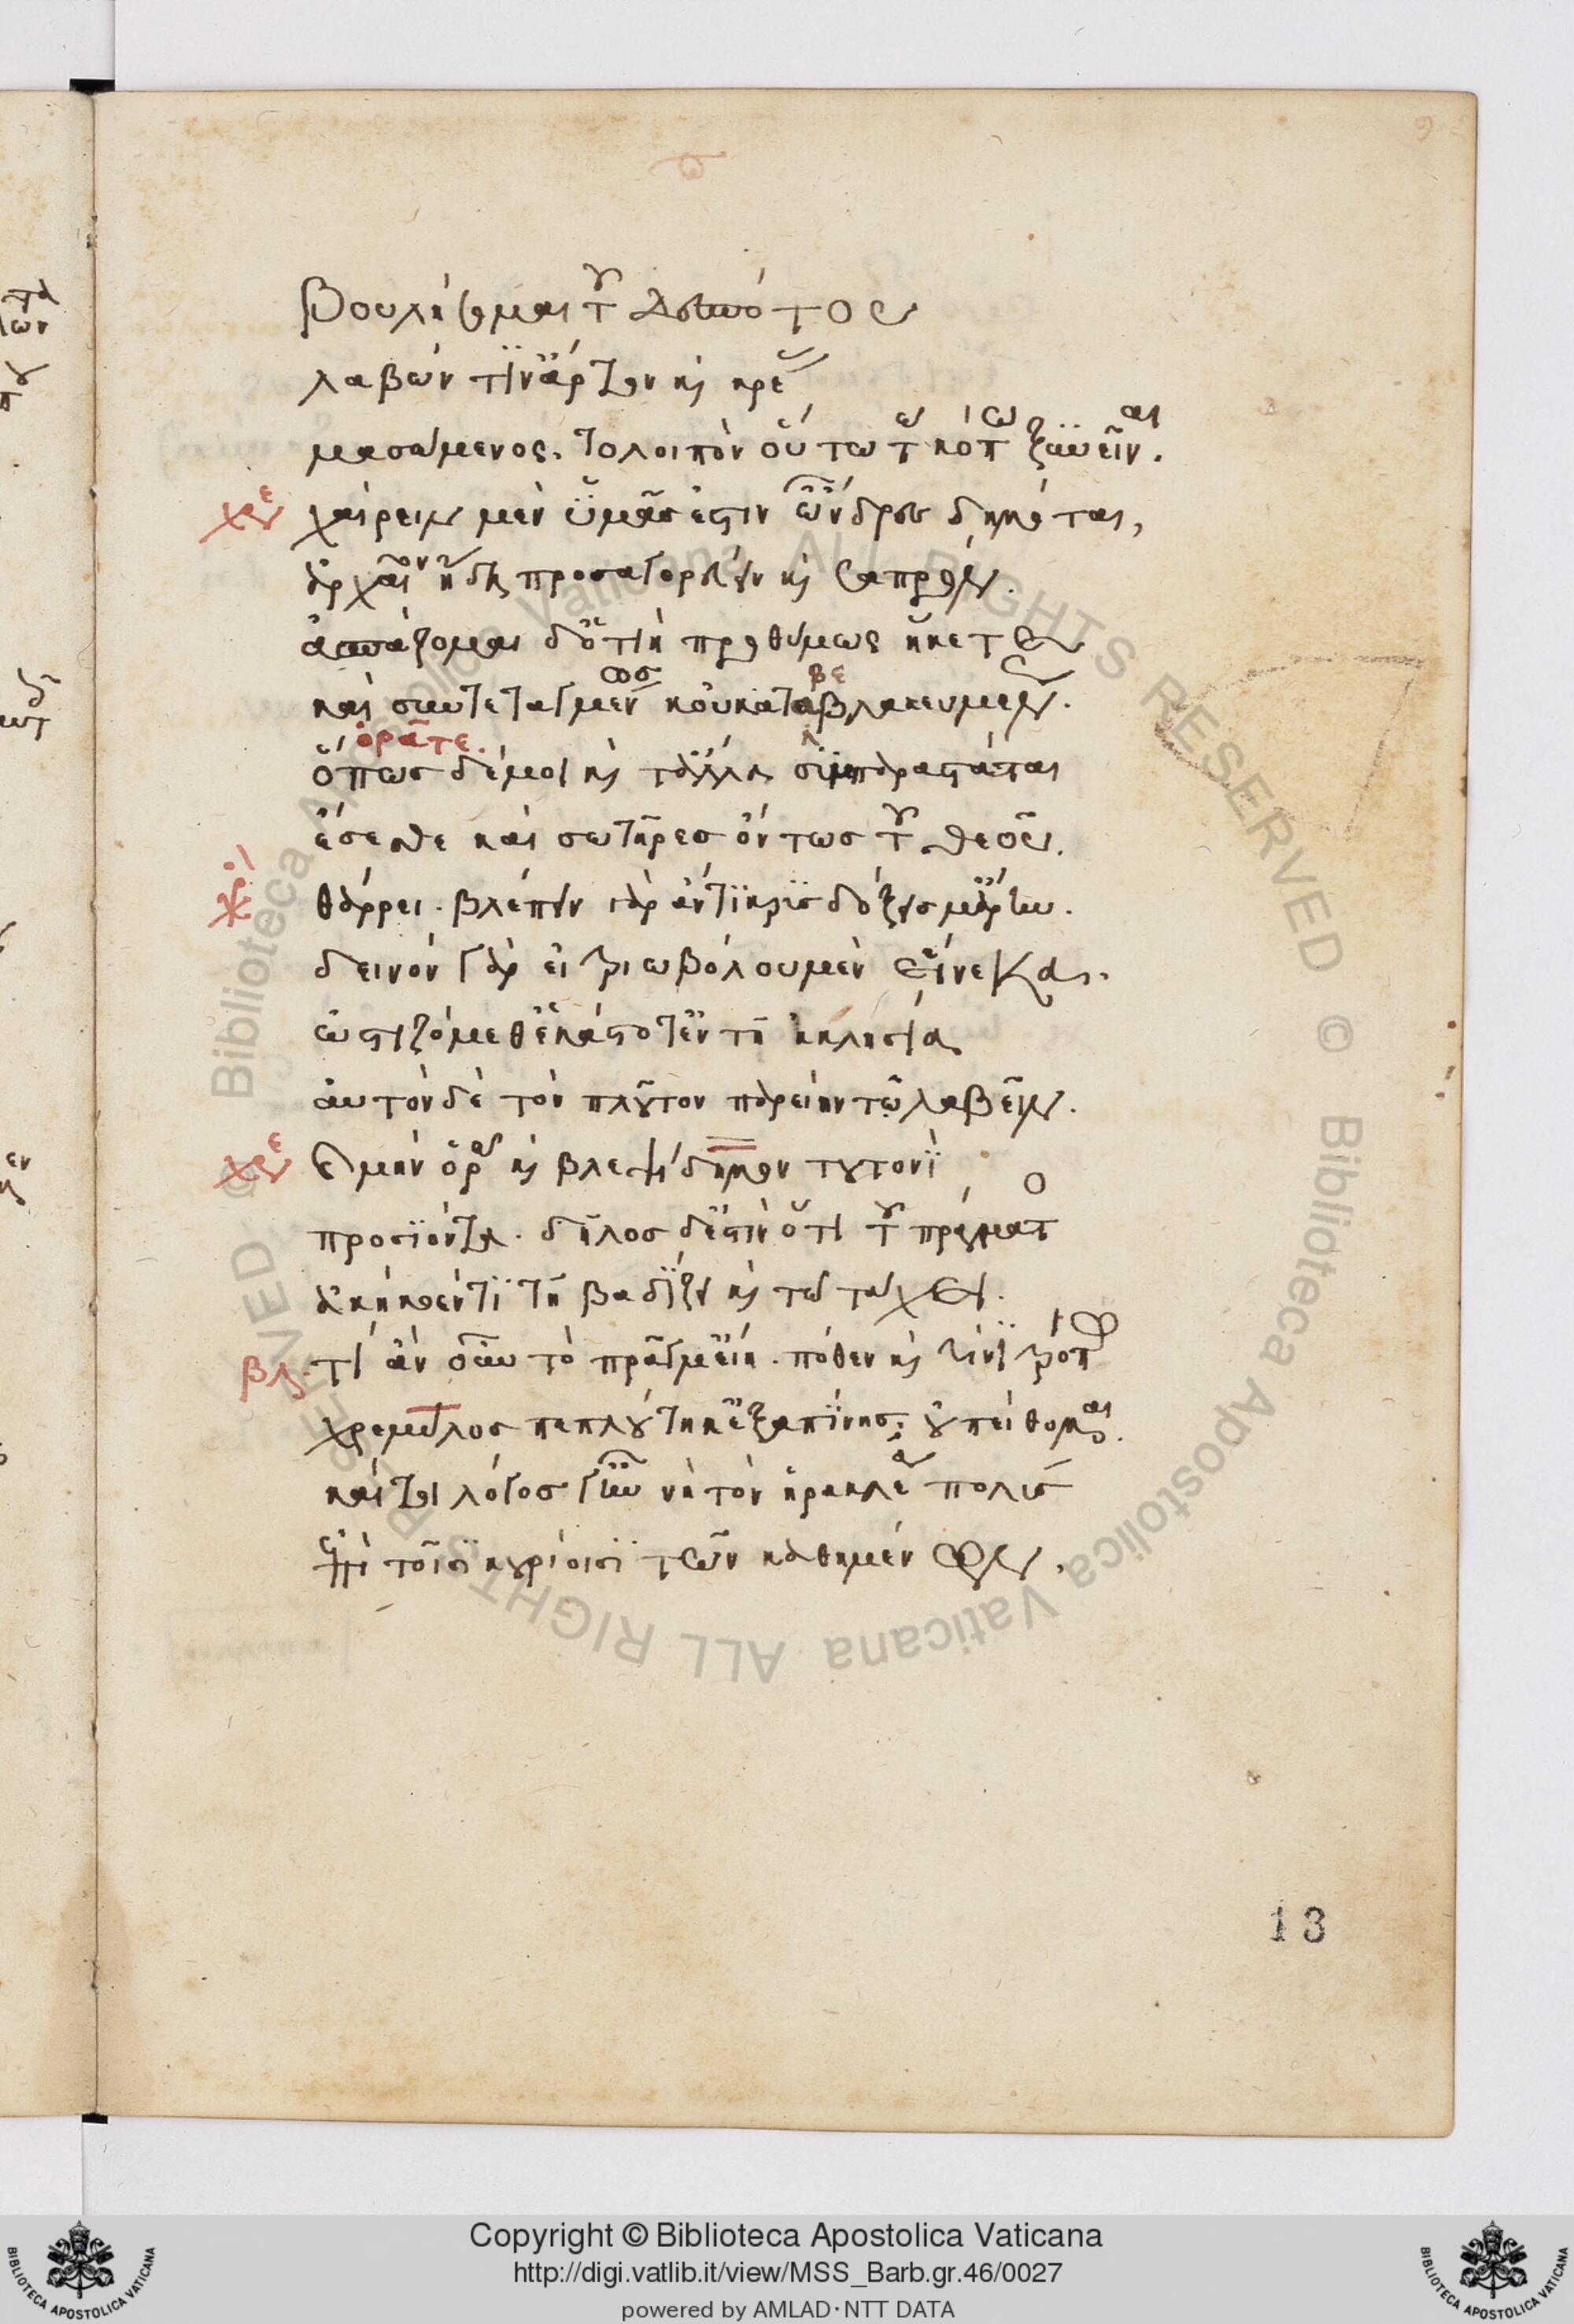 βουλήσομαι τοῦ δεσπότου
λαβών τιν' ἄρτον καὶ κρέας
μασώμενος. τολοιπὸν οὕτω τῷ κόπῳ ξυνεῖναι.
χρε χαίρειν μὲν ὑμᾶς ἐστιν ὦνδρες δημόται,
ἀρχαῖον ἤδη προσαγορεύειν καὶ σαπρόν.
ἀσπάζομαι δ' ὁτιὴ προθύμως ἥκετε
καὶ συντεταγμένως κοὐ καταβεβλακευμένως.
ὁρᾶτε.
ὅπως δέ μοι καὶ τἄλλα συμπαραστάται
ἔσεσθε καὶ σωτῆρες ὄντως τοῦ θεοῦ.
χο θάρρει. βλέπειν γὰρ ἄντικρυς δόξεις μ' ἄρην.
δεινὸν γὰρ εἰ τριωβόλου μὲν εἵνεκα
ὠστιζόμεθ' ἑκάστοτ' ἐν τῇ 'κκλησίᾳ
αὐτὸν δὲ τὸν πλοῦτον παρείην τῳ λαβεῖν.
χρε καὶ μὴν ὁρῶ καὶ βλεψίδημον τουτονὶ
προσιόντα. δῆλος δ' ἐστὶν ὅτι τοῦ πράγματος
ἀκήκοέν τι τῇ βαδίσει καὶ τῷ τάχει.
βλ. τί ἂν οὖν τὸ πρᾶγμ' εἴη. πόθεν καὶ τίνι τρόπῳ
χρεμύλος πεπλούτηκ' ἐξαπίνης; οὐ πείθομαι.
καίτοι λόγος γ' ἦν νὴ τὸν ἡρακλέα πολὺς
ἐπὶ τοῖσι κουρείοισι τῶν καθημένων,
13
Copyright © Biblioteca Apostolica Vaticana
http://digi.vatlib.it/view/MSS_Barb.gr.46/0027
powered by AMLAD·NTT DATA